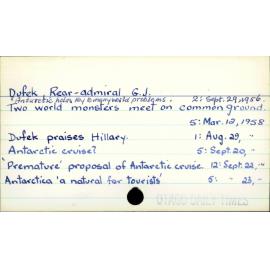 Dufek, Rear-admiral G.J.
'Antarctic holds key to many world problems. 2: Sept. 29, 1956.
Two world monsters meet on common ground.
5: Mar. 12, 1958
Dufek praises Hillary. 1: Aug. 29, "
Antarctic cruise? 5: Sept. 20, "
'Premature' proposal of Antarctic cruise. 12: Sept. 22, "
Antarctica 'a natural for tourists' 5: " 23, "